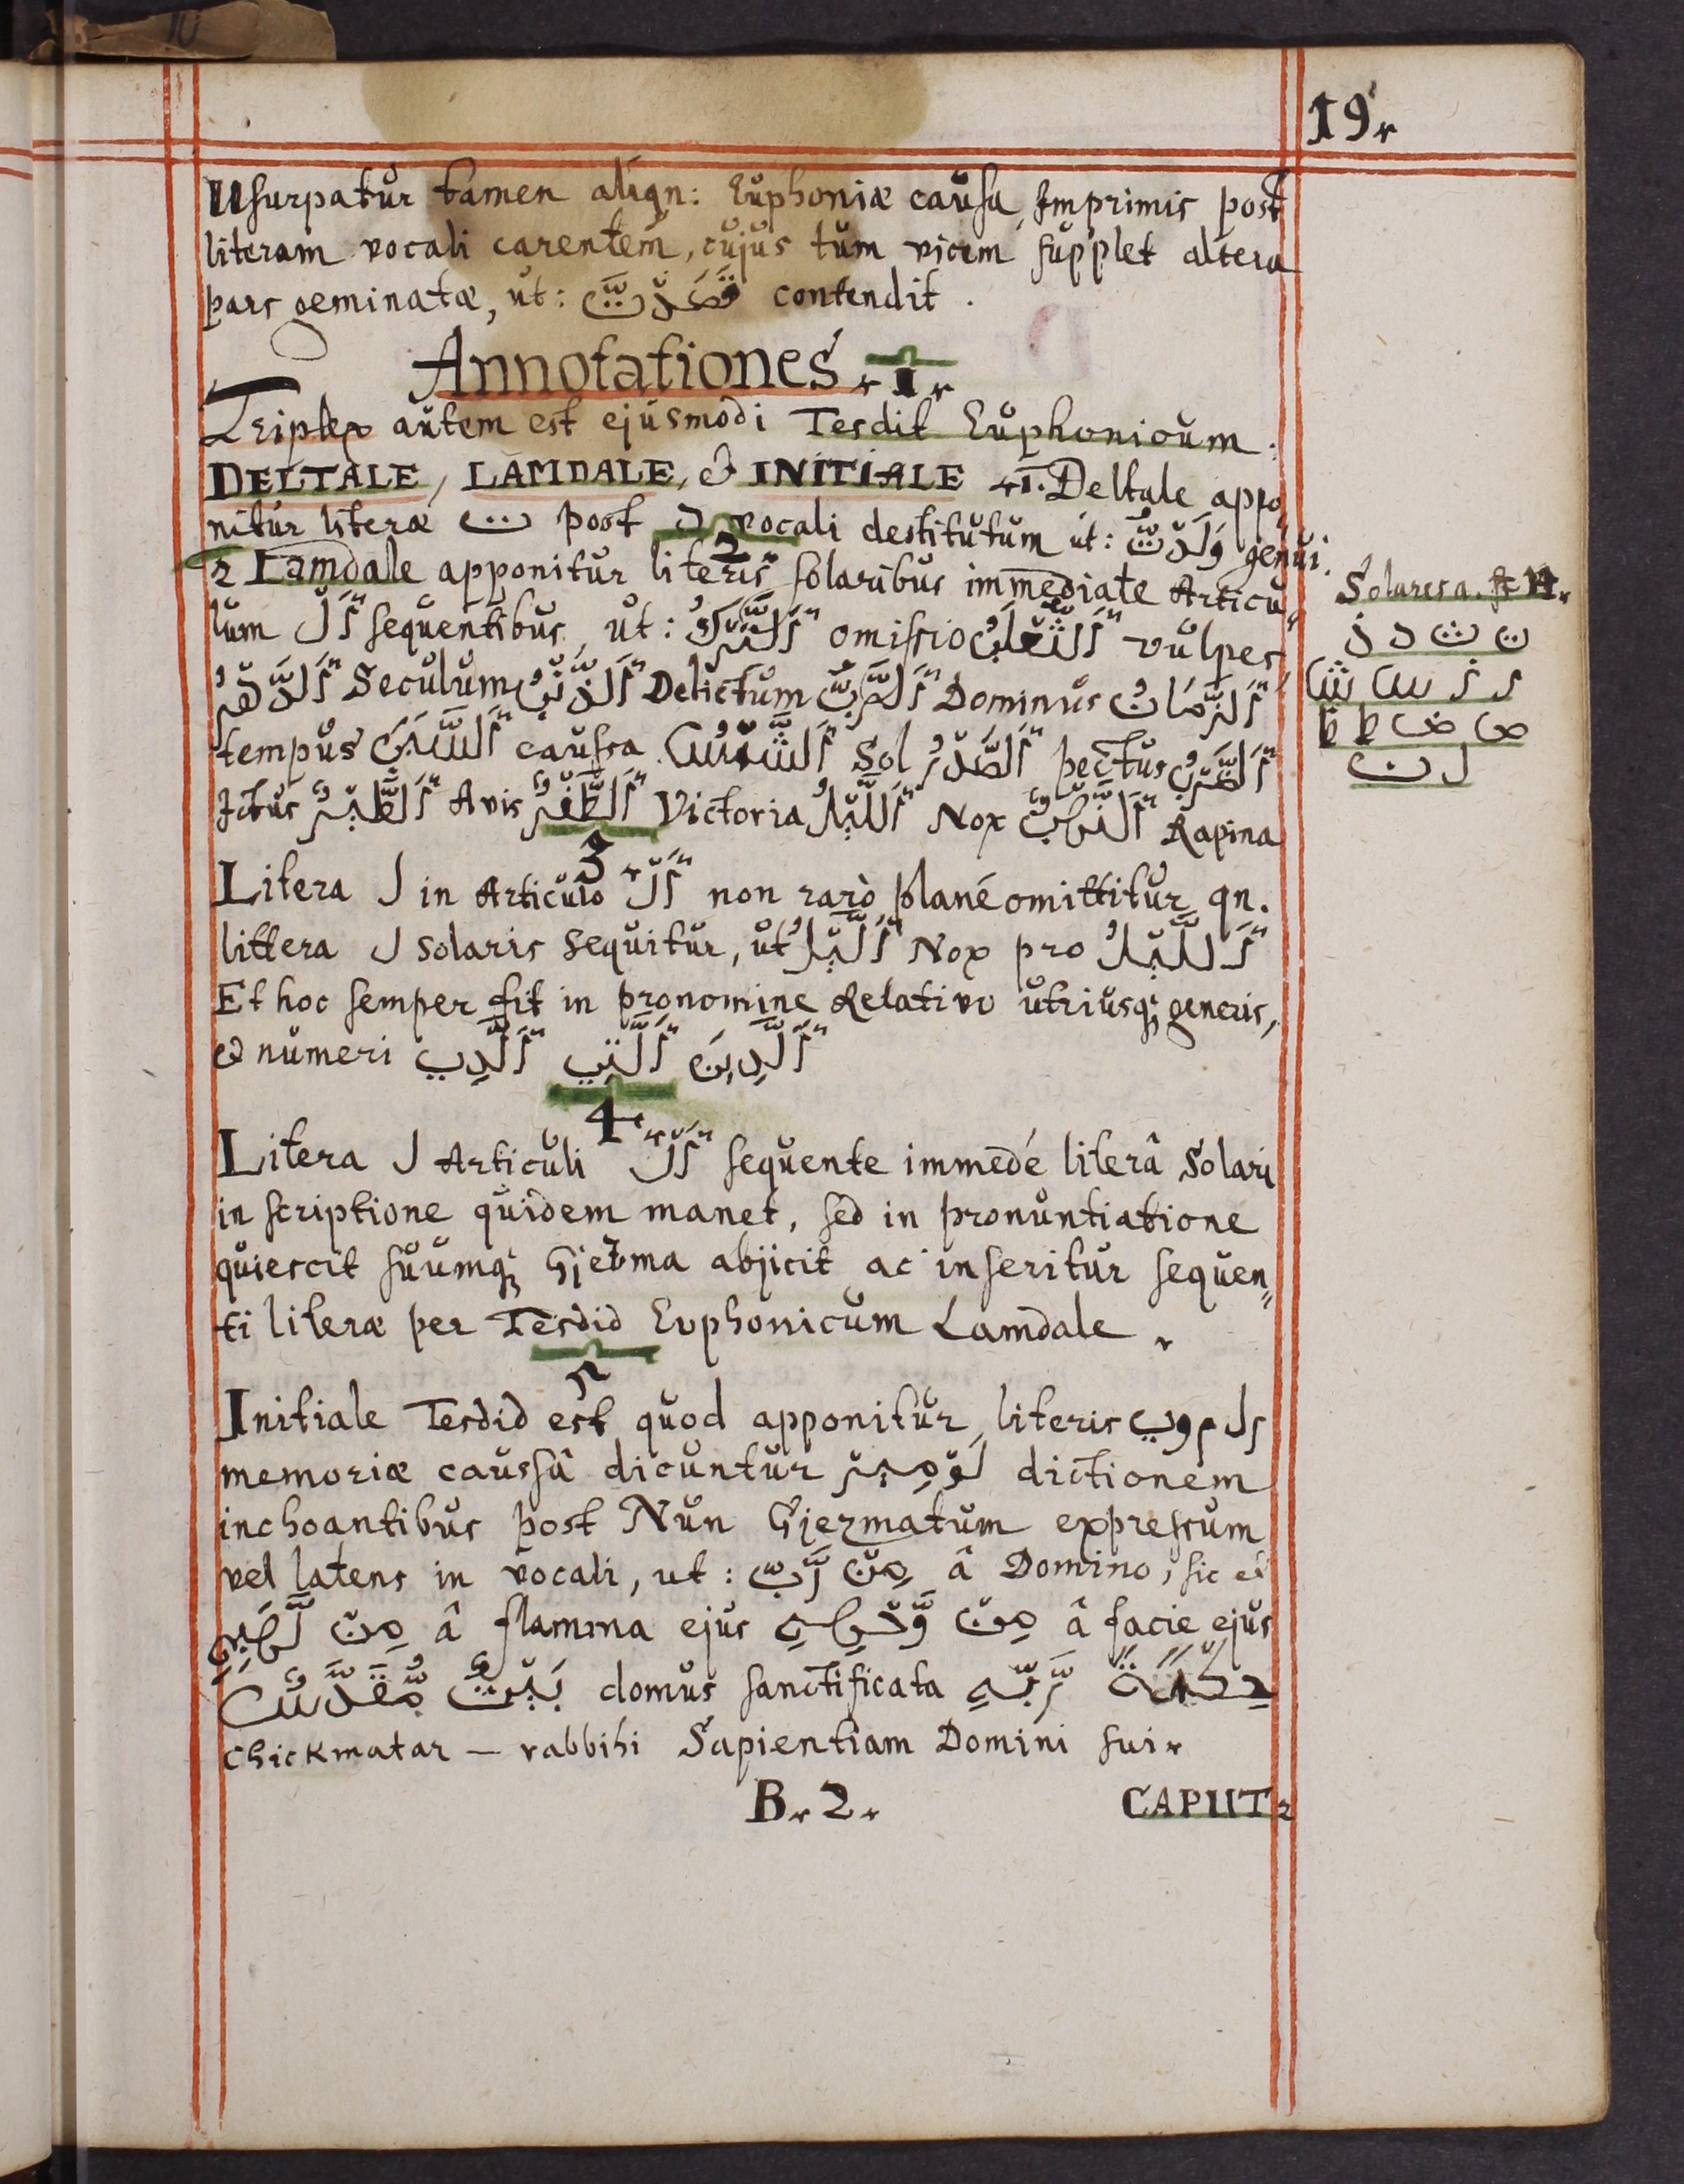 19.
Usurpatur tamen aliqn: Euphoniæ causa, Imprimis post
literam vocali carentem, cujus tum vicem supplet altera
pars geminatæ, ut: قَصَدْتَّ contendit.
Annotationes 1.
Triplex autem est ejusmodi Tesdit Euphonicum.
DELTALE, LAMDALE, & INITIALE 1. Deltale appo„
nitur literæ ت post د vocali destitutum ut: وَلَدْتُّ genui.
2
2 Lamdale apponitur literis solaribus immediate Articu„
lum اَلْ sequentibus, ut: اَلتَّرْكُ omissio اَلثَّعْلَبُ vulpes,
اَلدَّهْرُ Seculum اَلذَّنْبُ Delictum اَلرَّبُّ Dominus اَلزَّمَانُ
tempus اَلسَّبَبُ caussa اَلشَّمْسُ Sol اَلصَّدْرُ pectus اَلضَّرْبُ
Ictus اَلطَّيْرُ Avis اَلظَّفَرُ Victoria اَللَّيْلُ Nox اَلنَّهْبُ Rapina
Solares a. 14.
ت ث د ذ
ر ز س ش
ص ض ط ظ
ل ن
3.
Litera ل in Articulo اَلْ non rarò planè omittitur qn.
littera ل solaris sequitur, ut اَلَّيْلُ Nox pro اَللَّيْلُ
Et hoc semper fit in pronomine Relativo utriusq; generis,
& numeri اَلَّذِي اَلَّتِي اَلَّذِينَ
4.
Litera ل Articuli اَلْ sequente immedé literâ Solari
in scriptione quidem manet, sed in pronuntiatione
quiescit suumq; Gjezma abjicit ac inseritur sequen„
ti literæ per Tesdid Euphonicum Lamdale.
5
Initiale Tesdid est quod apponitur literis رل م وي
memoriæ caussâ dicuntur لَوْمِيرْ dictionem
inchoantibus post Nun Gjezmatum expressum
vel latens in vocali, ut: مِنْ رَّبّ â Domino, sic et
مِنْ لَّهَبِهِ â flamma ejus مِنْ وَّجْهِهِ â facie ejus
بَيْتٌ مُّقَدَّسٌ domus sanctificata حِكْمَةً رَّبِّهِ
Chickmatar – rabbihi Sapientiam Domini sui.
B. 2.
CAPUT